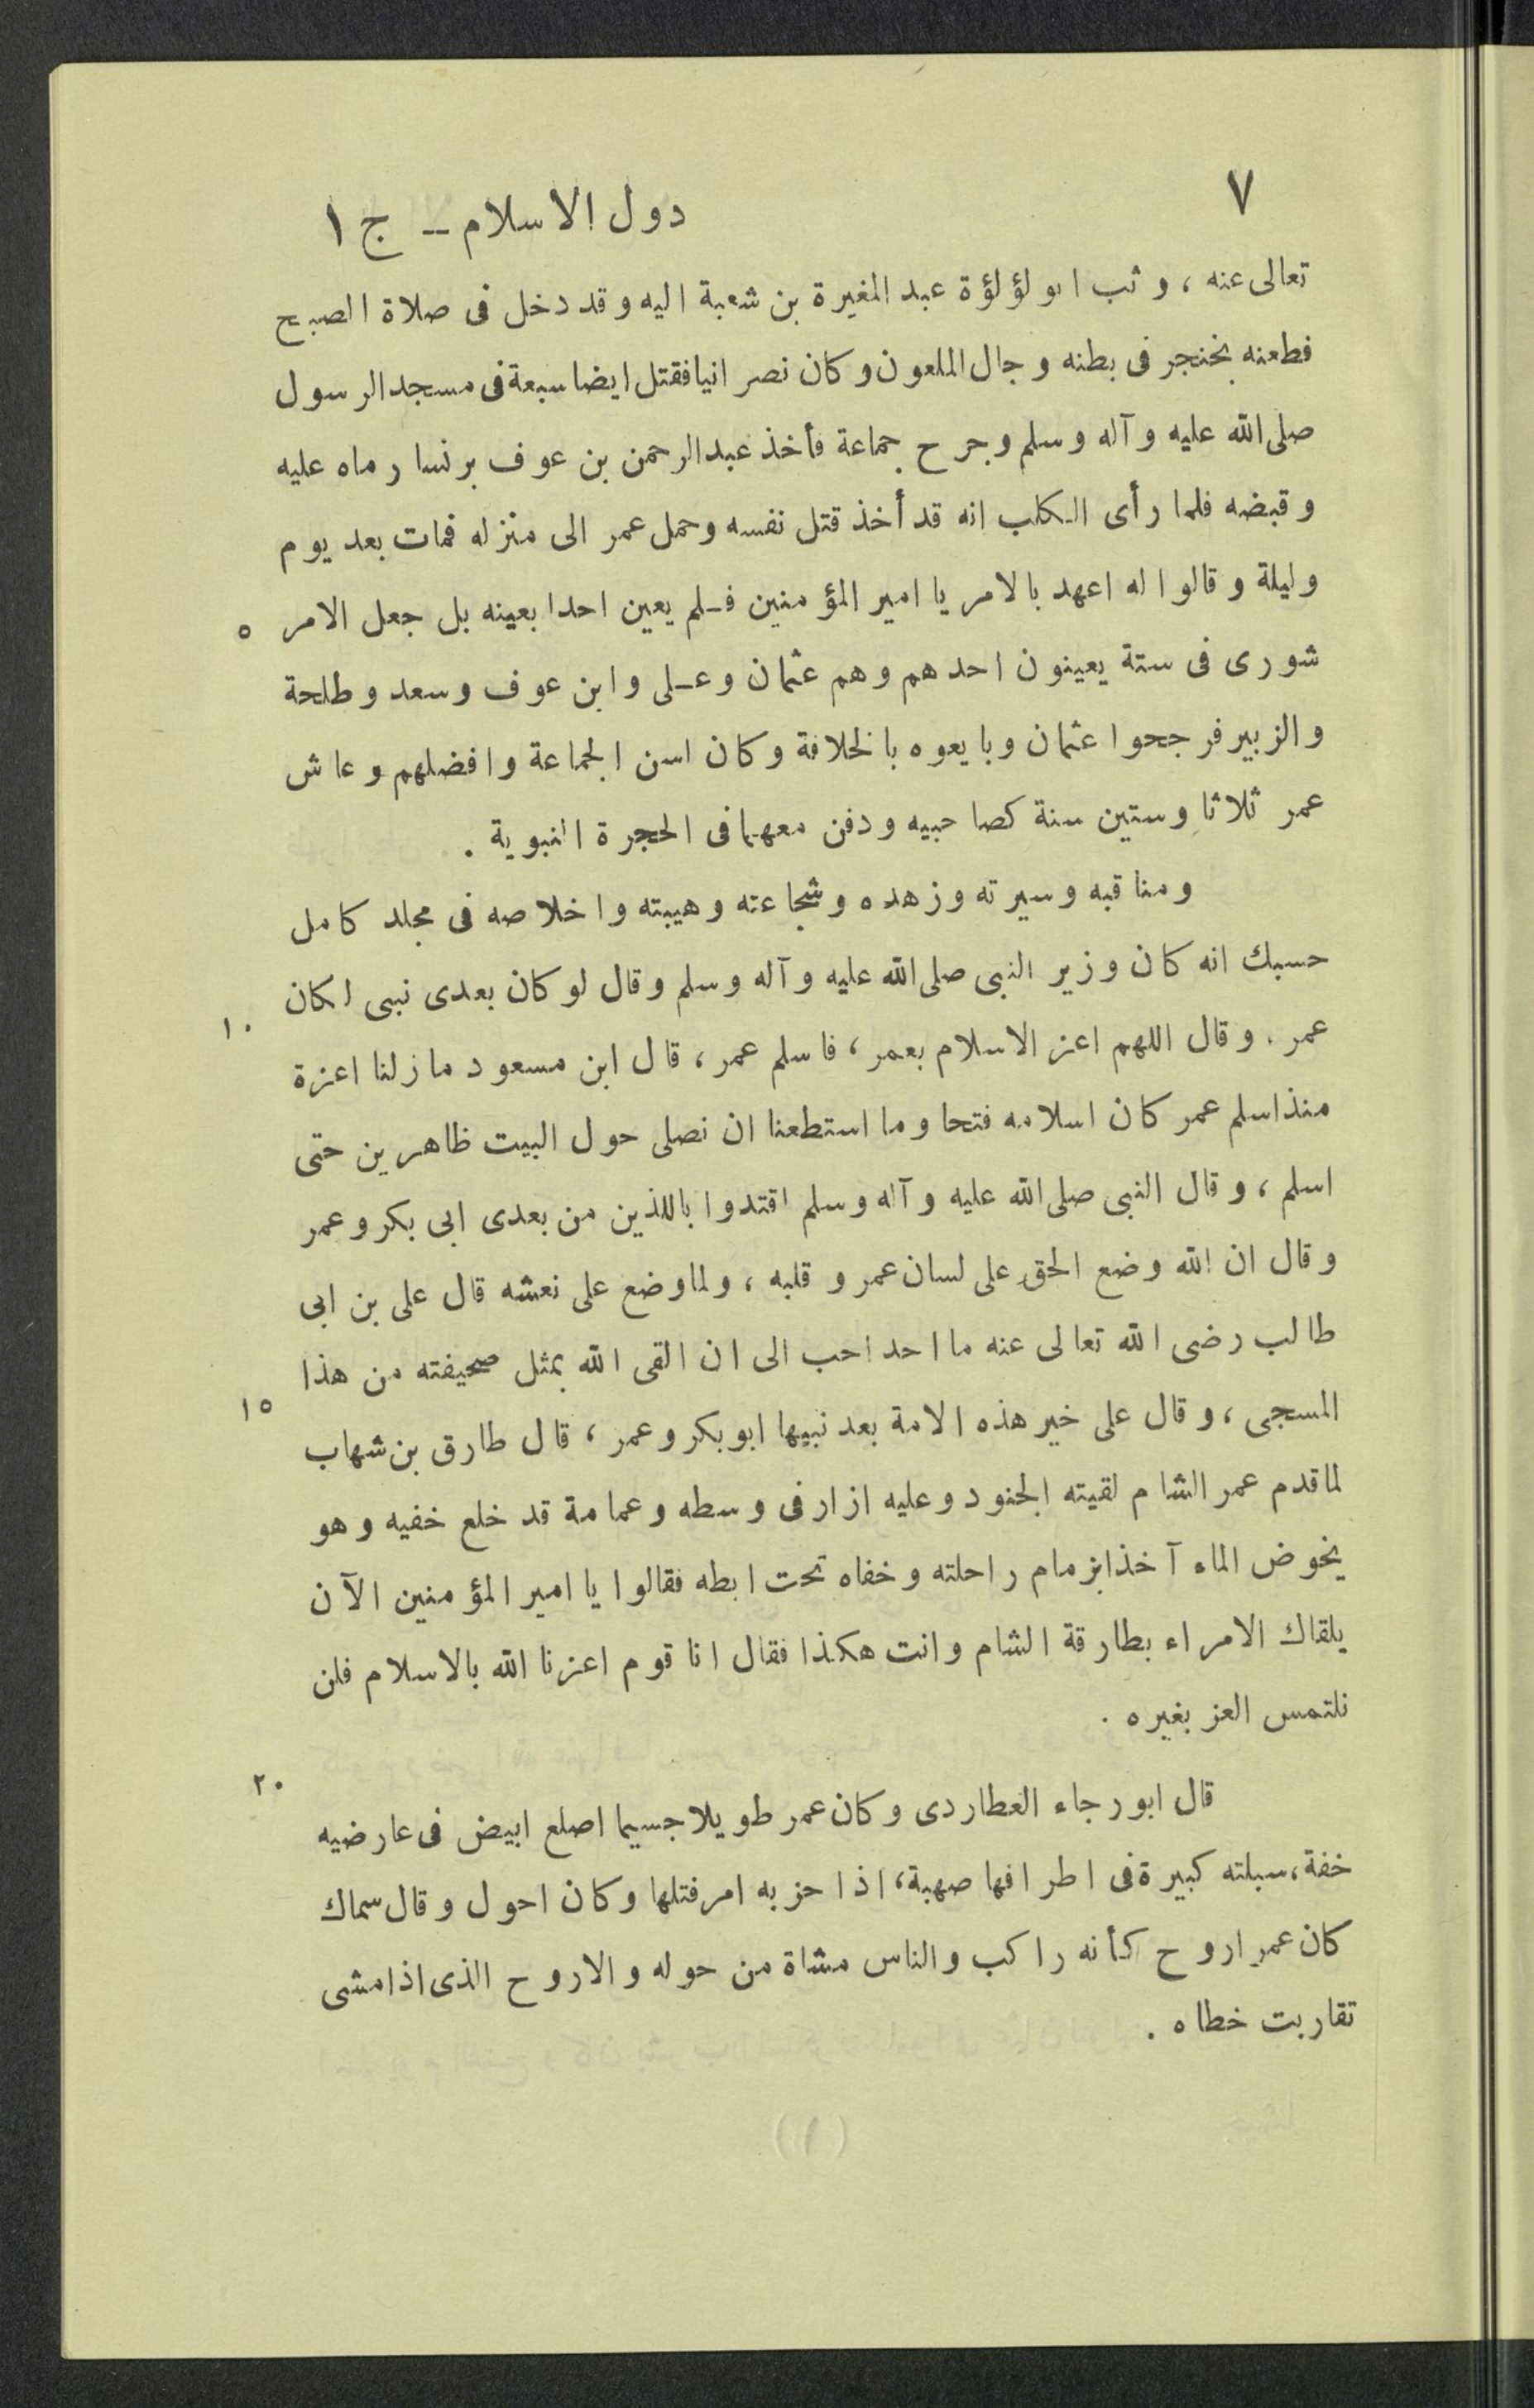 ٧
دول الاسلام ــ ج ١
تعالى عنه ، وثب ابو لؤلؤة عبد المغيرة بن شعبة اليه وقد دخل فى صلاة الصبح
فطعنه بخنجر فى بطنه وجال الملعون وكان نصرانيا فقتل ايضا سبعة فى مسجد الرسول
صلى الله عليه وآله وسلم وجرح جماعة فأخذ عبد الرحمن بن عوف برنسا رماه عليه
وقبضه فلما رأى الكلب انه قد أخذ قتل نفسه وحمل عمر الى منزله فمات بعد يوم
وليلة وقالوا له اعهد بالامر يا امير المؤمنين فـلم يعين احدا بعينه بل جعل الامر
٥
شورى فى ستة يعينون احدهم وهم عثمان وعـلى وابن عوف وسعد وطلحة
والزبير فرجحوا عثمان وبايعوه بالخلافة وكان اسن الجماعة وافضلهم وعاش
عمر ثلاثا وستين سنة كصاحبيه ودفن معهما فى الحجرة النبوية .
ومناقبه وسيرته وزهده وشجاعته وهيبته واخلاصه فى مجلد كامل
حسبك انه كان وزير النبى صلى الله عليه وآله وسلم وقال لو كان بعدى نبى لكان
١٠
عمر . وقال اللهم اعز الاسلام بعمر ، فاسلم عمر ، قال ابن مسعود ما زلنا اعزة
منذ اسلم عمر كان اسلامه فتحا وما استطعنا ان نصلى حول البيت ظاهرين حتى
اسلم ، وقال النبى صلى الله عليه وآله وسلم اقتدوا باللذين من بعدى ابى بكر وعمر
وقال ان الله وضع الحق على لسان عمر وقلبه ، ولما وضع على نعشه قال على بن ابى
طالب رضى الله تعالى عنه ما احد احب الى ان القى الله بمثل صحيفته من هذا
١٥
المسجى ، وقال على خير هذه الامة بعد نبيها ابو بكر وعمر ، قال طارق بن شهاب
لما قدم عمر الشام لقيته الجنود وعليه ازار فى وسطه وعمامة قد خلع خفيه وهو
يخوض الماء آخذا بزمام راحلته وخفاه تحت ابطه فقالوا يا امير المؤمنين الآن
يلقاك الامراء بطارقة الشام وانت هكذا فقال انا قوم اعزنا الله بالاسلام فلن
نلتمس العز بغيره .
٢٠
قال ابو رجاء العطاردى وكان عمر طويلا جسيما اصلع ابيض فى عارضيه
خفة ، سبلته كبيرة فى اطرافها صهبة ، اذا حزبه امر فتلها وكان احول وقال سماك
كان عمر اروح كأنه راكب والناس مشاة من حوله والاروح الذى اذا مشى
تقاربت خطاه .